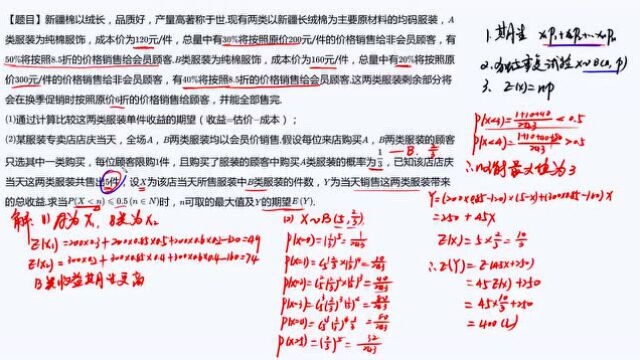 【题目】新疆棉以绒长，品质好，产量高著称于世.现有两类以新疆长绒棉为主要原材料的均码服装，A
类服装为纯棉服饰，成本价为120元/件，总量中有30%将按照原价200元/件的价格销售给非会员顾客，有
50%将按照8.5折的价格销售给会员顾客.B类服装为纯棉服饰，成本价为160元/件，总量中有20%将按照
原价300元/件的价格销售给非会员顾客，有40%将按照8.5折的价格销售给会员顾客.这两类服装剩余部分将
会在换季促销时按照原价6折的价格销售给顾客，并能全部售完.
(1)通过计算比较这两类服装单件收益的期望（收益=售价−成本）；
(2)某服装专卖店店庆当天，全场A，B两类服装均以会员价销售.假设每位来店购买A，B两类服装的顾客
只选其中一类购买，每位顾客限购1件，且购买了服装的顾客中购买A类服装的概率为1/3，已知该店店庆
当天这两类服装共售出5件，设X为该店当天所售服装中B类服装的件数，Y为当天销售这两类服装带来
的总收益.求当P(X<n)≤0.5(n∈N)时，n可取的最大值及Y的期望E(Y).
B 2/3
1.期望 x₁p₁+x₂p₂+...+xₙpₙ
2.独立重复试验 X~B(n,p)
3. E(X)=np
P(X<3)=(1+10+40)/243<0.5
P(X<4)=(1+10+40+80)/243>0.5
∴n可取最大值为3
Y=(200×0.85-120)(5-X)+(300×0.85-160)X
=250+45X
E(X)=5×2/3=10/3
∴E(Y)=E(45X+250)
=45E(X)+250
=45×10/3+250
=400(元)
解：(1)A为X₁，B类为X₂
E(X₁)=200×0.3+200×0.85×0.5+200×0.6×0.2-120=49
E(X₂)=300×0.2+300×0.85×0.4+300×0.6×0.4-160=74
B类收益期望更高
(2) X~B(5,2/3)
P(X=0)=(1/3)⁵=1/243
P(X=1)=C₅¹(2/3)(1/3)⁴=10/243
P(X=2)=C₅²(2/3)²(1/3)³=40/243
P(X=3)=C₅³(2/3)³(1/3)²=80/243
P(X=4)=C₅⁴(2/3)⁴(1/3)=80/243
P(X=5)=(2/3)⁵=32/243